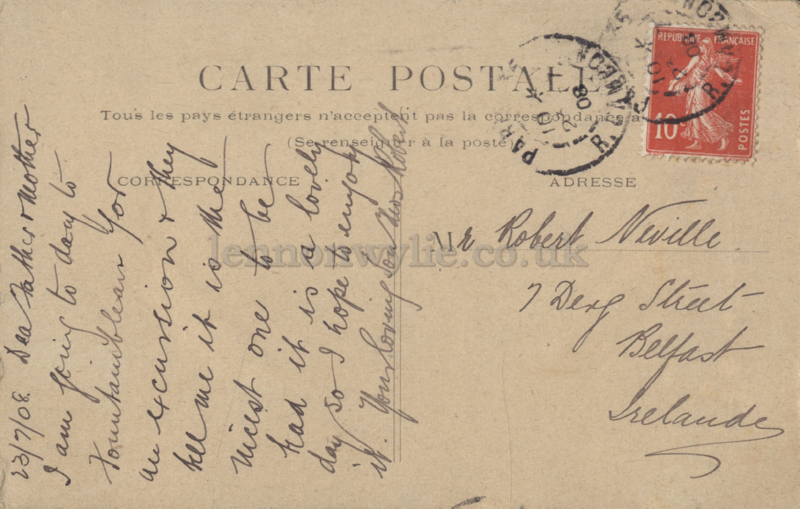 CARTE POSTALE
Tous les pays étrangers n'acceptent pas la correspondance a
(Se renseigner à la poste)
CORRESPONDANCE
ADRESSE
RÉPUBLIQUE FRANÇAISE
10
POSTES
PAR
R. GAMBON
Mr Robert Neville
7 Derg Street
Belfast
Irelande
lennonwylie.co.uk
23/7/08. Dear Father & Mother
I am going to day to
Fountainbleau for
an excursion & they
tell me it is the
nicest one to be
had it is a lovely
day so I hope to enjoy
it. Your loving son Thos Robert